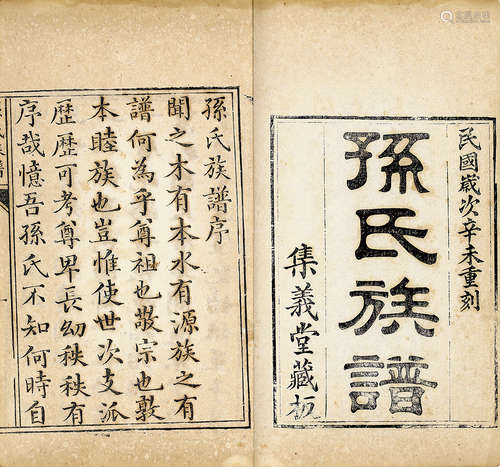 民國歲次辛未重刻
孫氏族譜
集義堂藏板
孫氏族譜序
聞之木有本水有源族之有
譜何為乎尊祖也敬宗也敦
本睦族也豈惟使世次支派
歷歷可考尊卑長幼秩秩有
序哉憶吾孫氏不知何時自